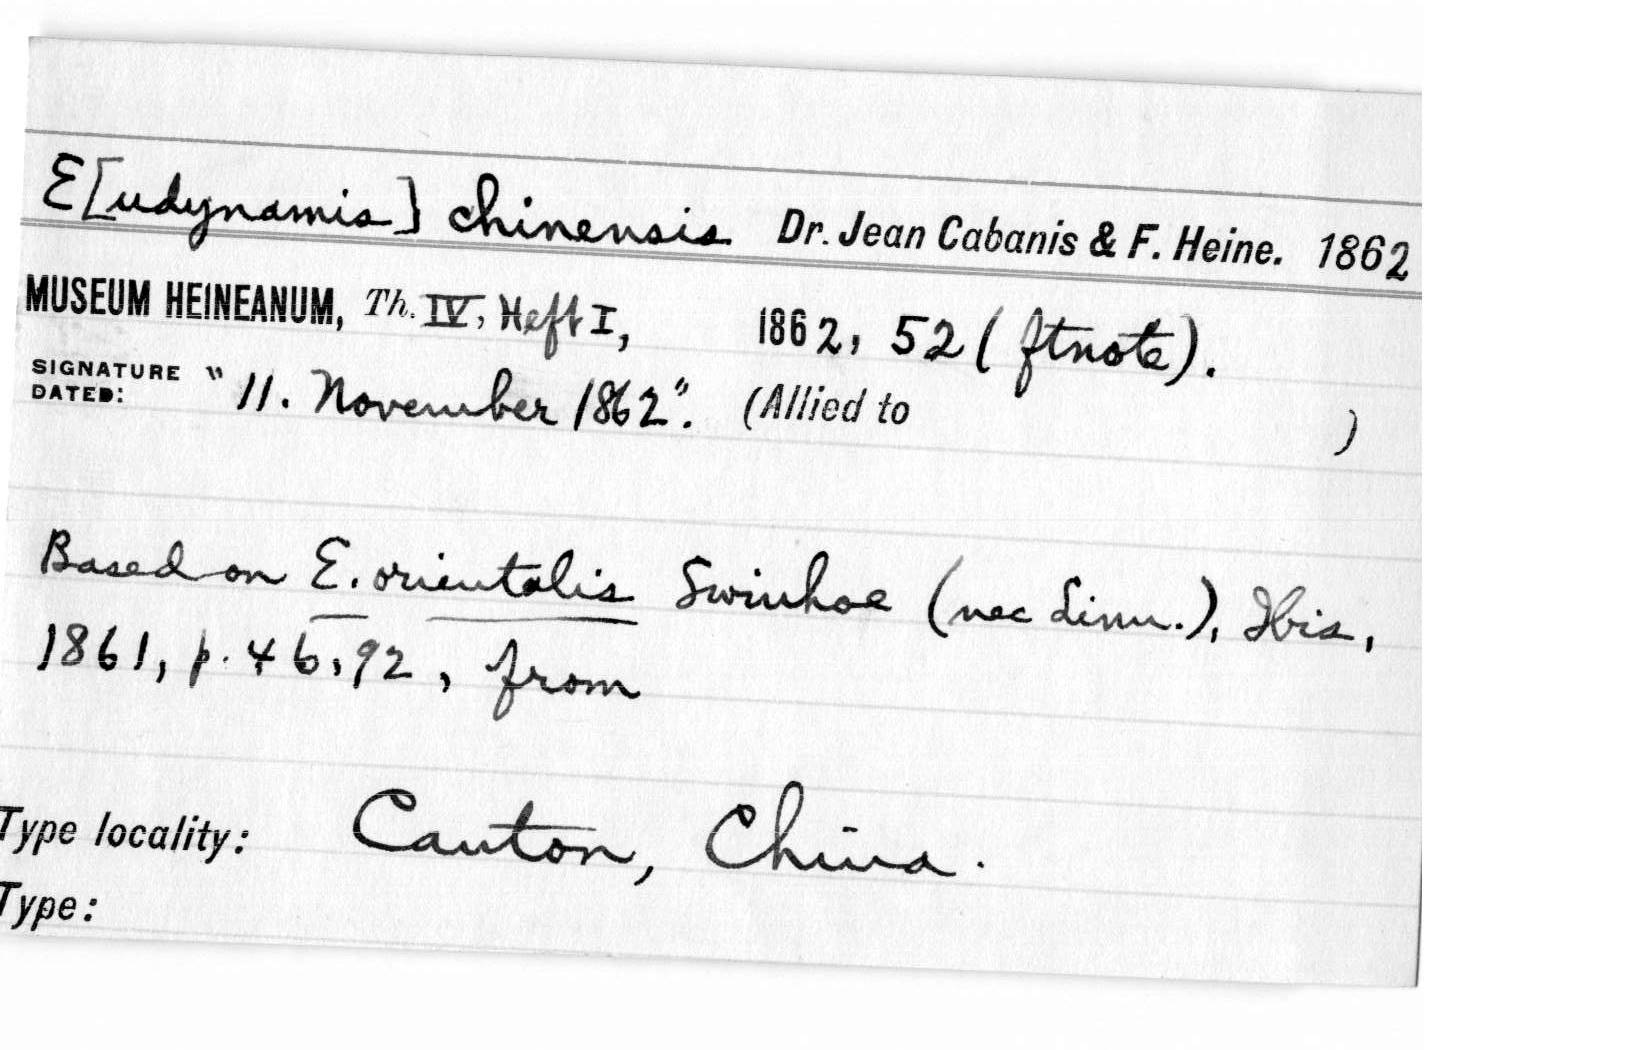 E[udynamis] chinensis Dr. Jean Cabanis & F. Heine. 1862
MUSEUM HEINEANUM, Th. IV, Heft I, 1862, 52 (ftnote).
SIGNATURE DATED: "11. November 1862". (Allied to )
Based on E. orientalis Swinhoe (nec Linn.), Ibis,
1861, p. 46, 92, from
Type locality: Canton, China.
Type: